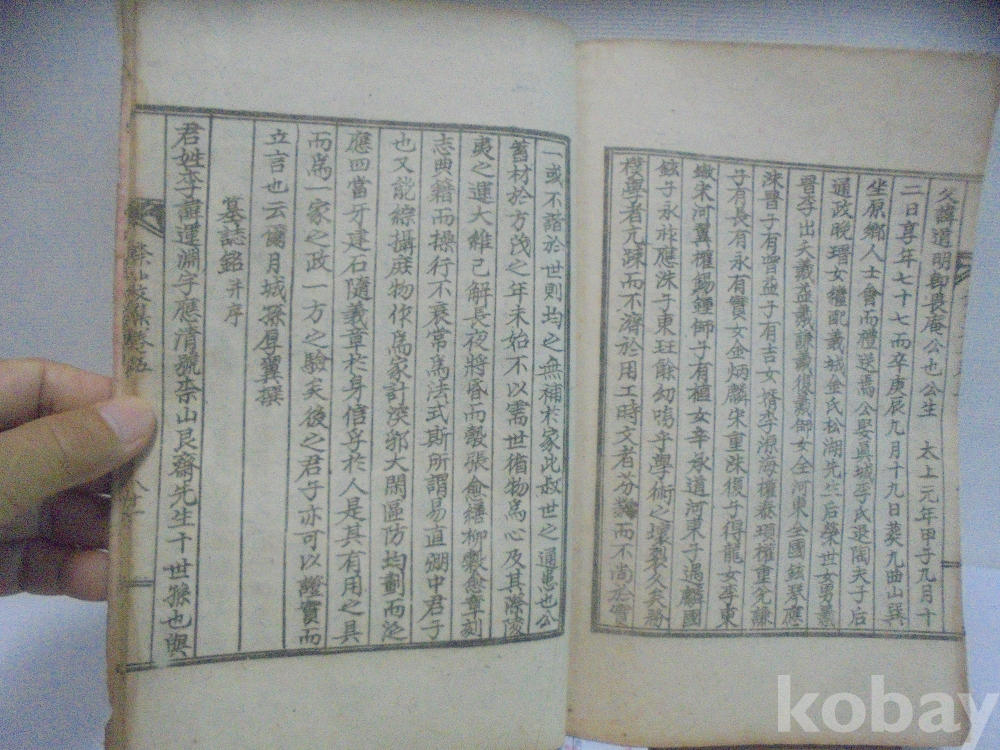 父諱道明卽艮庵公也公生 太上元年甲子九月十
二日享年七十七而卒庚辰九月十九日葬九曲山巽
坐原鄕人士會而禮送焉公娶眞城李氏退陶夫子后
通政晩瑨女繼配義城金氏松湖先生后榮世女男羲
晋李出天羲益羲謙羲復羲御女全河東全國鉉琴應
洙晋子有曾益子有吉女婿李源海權泰頊權重兗謙
子有長有永有實女金炳麟宋重洙復子得龍女李東
緻宋河翼權錫鍾御子有植女辛承道河東子遇麟國
鉉子永 應洙子東珏餘幼嗚乎學術之壞裂久矣務
樸學者亢疎而不濟於用工時文者芬 而不尚於實
一或不諧於世則均之無補於家此叔世之通患也公
蓄材於方茂之年未始不以需世循物爲心及其際陵
夷之運大維已解長夜將昏而彀張愈繕柳轡愈章刻
志典籍而操行不衰常爲法式斯所謂易直弸中君子
也又能綜攝庶物作爲家計深鄕大閑區防均劃而泛
應四當牙建石隨義章於身信乎於人是其有用之具
而爲一家之政一方之驗矣後之君子亦可以證實而
立言也云爾月城孫厚翼撰
墓誌銘并序
君姓李諱運淵字應淸號柰山艮齋先生十世孫也與